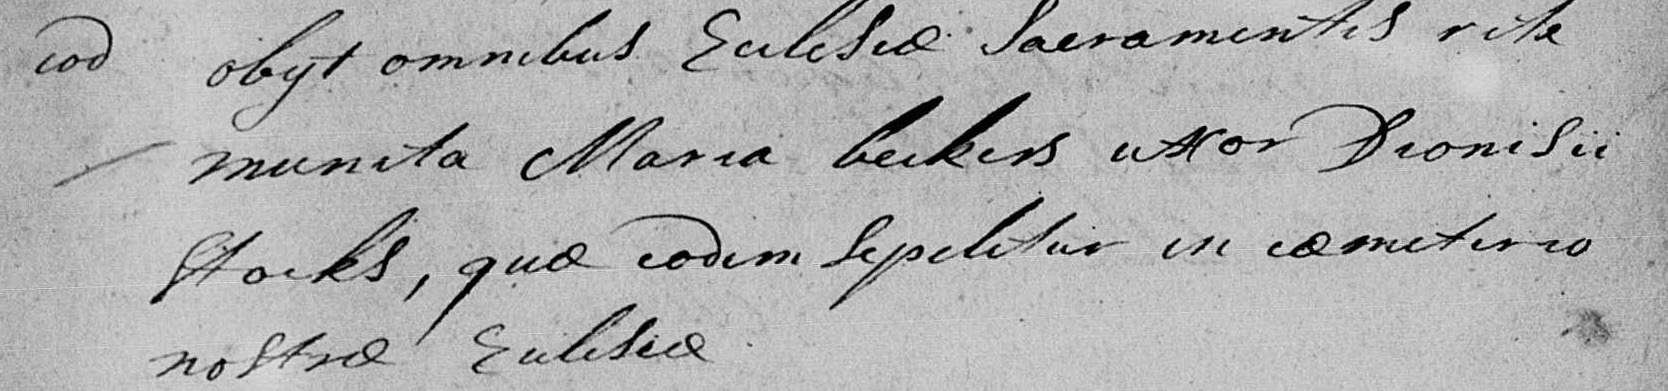 eod obyt omnibus Ecclesiæ Sacramentis rite
munita Maria beckers uxor Dionisii
Stocks, quæ eodem sepelitur in cæmeterio
nostræ Ecclesiæ